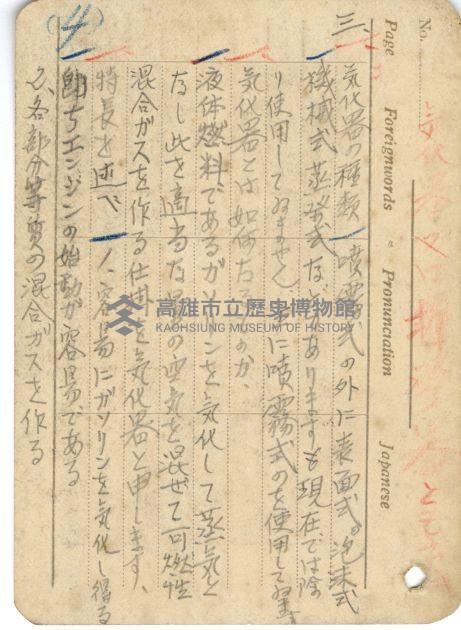 No.
Page Foreignwords Pronunciation Japanese
三、
気化器の種類 噴霧式の外に表面式。泡沫式
機械式 蒸発式などありますも現在では除
り使用して居ません 主に噴霧式のを使用して居ます
気化器とは如何なるものか、
液体燃料であるガソリンを気化して蒸気と
なし此を適当な量の空気を混ぜて可燃性
混合ガスを作る仕掛を気化器と申します、
特長を述べ 1、容易にガソリンを気化し得る
即ちエンジンの始動が容易である
2、各部分等質の混合ガスを作る
高雄市立歷史博物館
KAOHSIUNG MUSEUM OF HISTORY